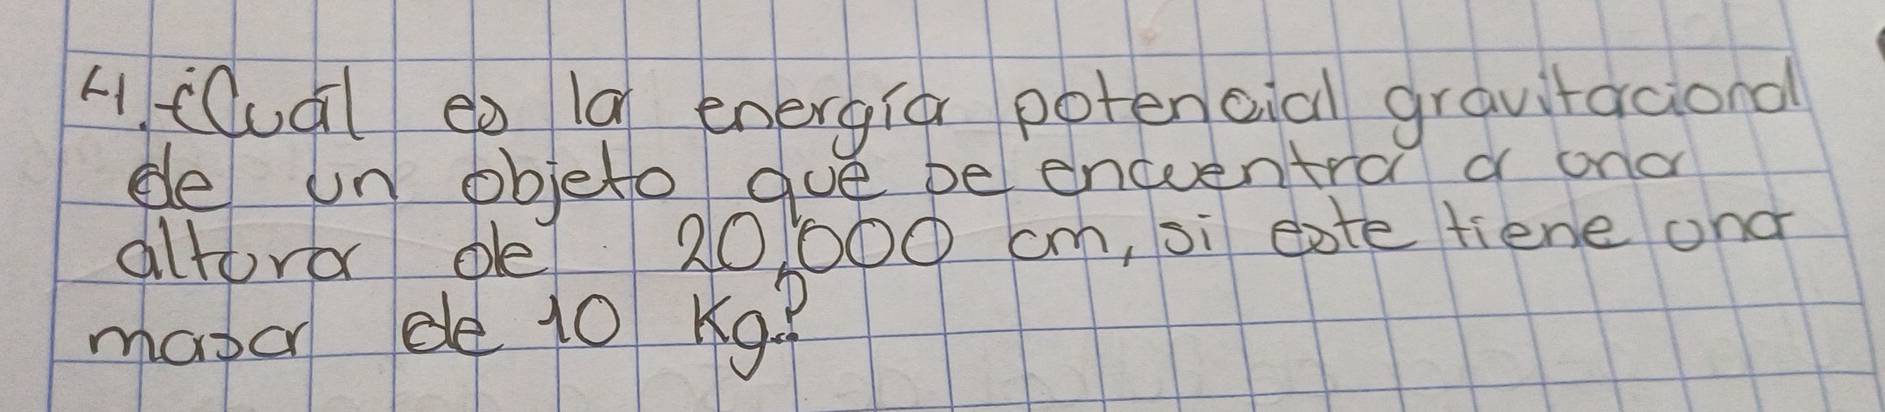 4. ¿Cuál es la energía potencial gravitacional
de un objeto que se encuentra a una
altura de 20,000 cm, si este tiene una
masa de 10 Kg?